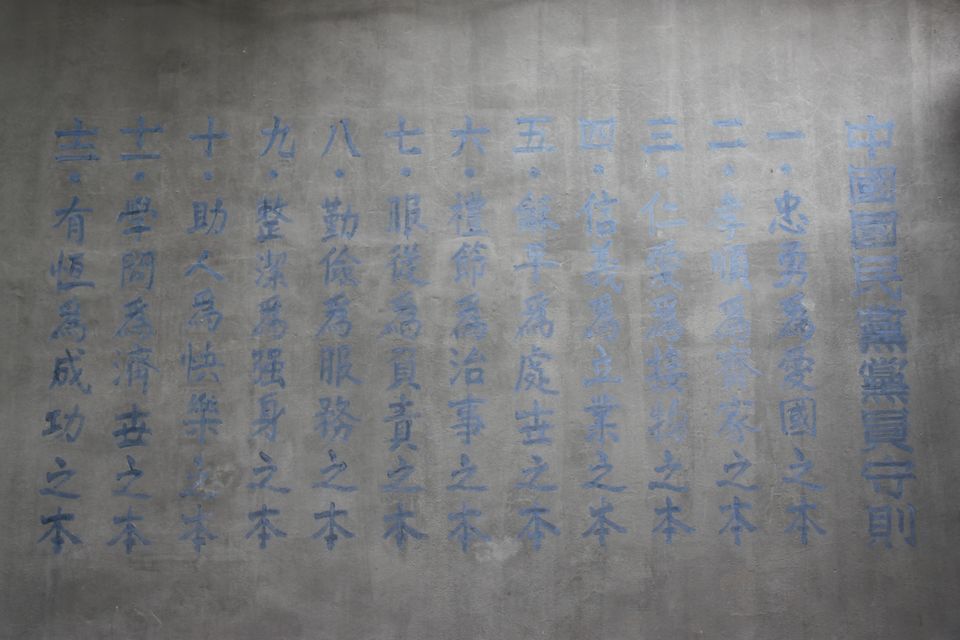 中國國民黨黨員守則
一・忠勇為愛國之本
二・孝順為齊家之本
三・仁愛為接物之本
四・信義為立業之本
五・龢平為處世之本
六・禮節為治事之本
七・服從為負責之本
八・勤儉為服務之本
九・整潔為强身之本
十・助人為快樂之本
十一・學問為濟世之本
十二・有恆為成功之本